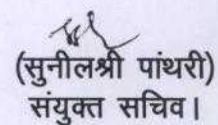 (सुनीलश्री पांथरी)
संयुक्त सचिव।